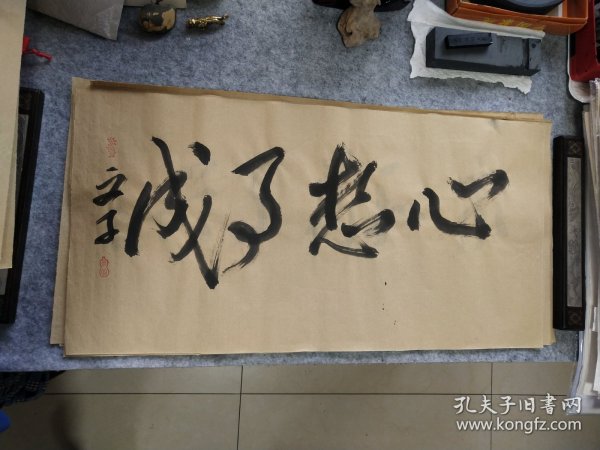 心想事成
孔夫子旧书网
www.kongfz.com